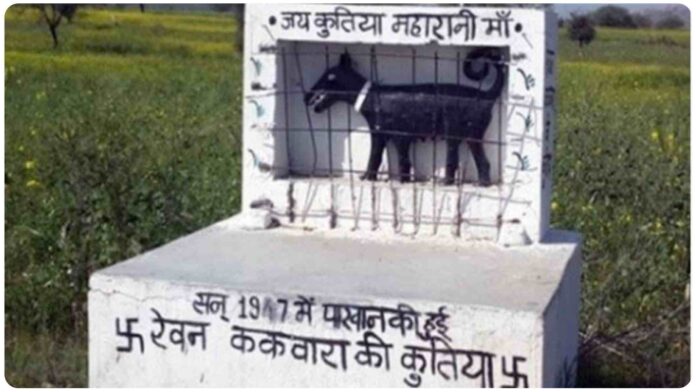 • जय कुतिया महारानी माँ •
सन् 1947 में पाखान की हुई
卐 रेवन ककवारा की कुतिया 卐